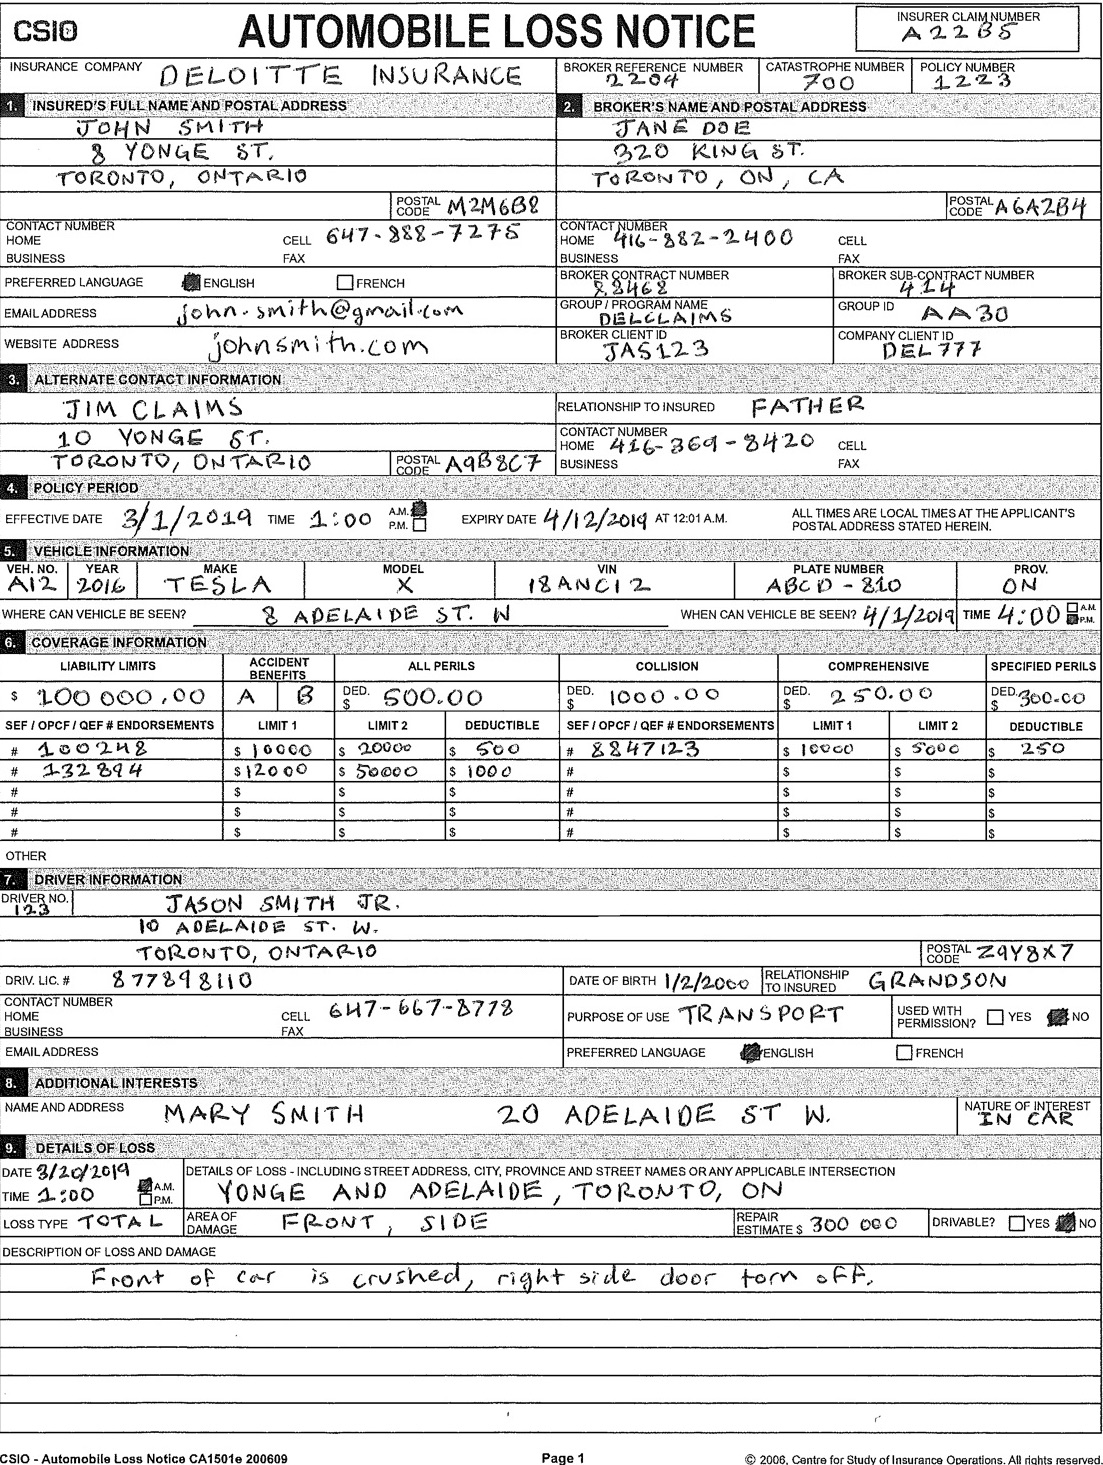 CSIO AUTOMOBILE LOSS NOTICE INSURER CLAIM NUMBER
A22B5
INSURANCE COMPANY DELOITTE INSURANCE BROKER REFERENCE NUMBER 2204 CATASTROPHE NUMBER 700 POLICY NUMBER 1223
1. INSURED'S FULL NAME AND POSTAL ADDRESS 2. BROKER'S NAME AND POSTAL ADDRESS
JOHN SMITH JANE DOE
8 YONGE ST. 320 KING ST.
TORONTO, ONTARIO TORONTO, ON, CA
POSTAL CODE M2M6B8 POSTAL CODE A6A2B4
CONTACT NUMBER CONTACT NUMBER
HOME CELL 647-888-7275 HOME 416-882-2400 CELL
BUSINESS FAX BUSINESS FAX
PREFERRED LANGUAGE ENGLISH FRENCH BROKER CONTRACT NUMBER 88468 BROKER SUB-CONTRACT NUMBER 414
EMAIL ADDRESS john.smith@gmail.com GROUP / PROGRAM NAME DELCLAIMS GROUP ID AA30
WEBSITE ADDRESS johnsmith.com BROKER CLIENT ID JAS123 COMPANY CLIENT ID DEL777
3. ALTERNATE CONTACT INFORMATION
JIM CLAIMS RELATIONSHIP TO INSURED FATHER
10 YONGE ST. CONTACT NUMBER HOME 416-369-8420 CELL
TORONTO, ONTARIO POSTAL CODE A9B8C7 BUSINESS FAX
4. POLICY PERIOD
EFFECTIVE DATE 3/1/2019 TIME 1:00 A.M. P.M. EXPIRY DATE 4/12/2019 AT 12:01 A.M. ALL TIMES ARE LOCAL TIMES AT THE APPLICANT'S POSTAL ADDRESS STATED HEREIN.
5. VEHICLE INFORMATION
VEH. NO. YEAR MAKE MODEL VIN PLATE NUMBER PROV.
A12 2016 TESLA X 18ANC12 ABCD-810 ON
WHERE CAN VEHICLE BE SEEN? 8 ADELAIDE ST. W WHEN CAN VEHICLE BE SEEN? 4/1/2019 TIME 4:00 A.M. P.M.
6. COVERAGE INFORMATION
LIABILITY LIMITS ACCIDENT BENEFITS ALL PERILS COLLISION COMPREHENSIVE SPECIFIED PERILS
$ 100 000.00 A B DED. $ 500.00 DED. $ 1000.00 DED. $ 250.00 DED. $ 300.00
SEF / OPCF / QEF # ENDORSEMENTS LIMIT 1 LIMIT 2 DEDUCTIBLE SEF / OPCF / QEF # ENDORSEMENTS LIMIT 1 LIMIT 2 DEDUCTIBLE
# 100248 $ 10000 $ 20000 $ 500 # 8847123 $ 10000 $ 5000 $ 250
# 132894 $ 12000 $ 50000 $ 1000 # $ $ $
# $ $ $ # $ $ $
# $ $ $ # $ $ $
# $ $ $ # $ $ $
OTHER
7. DRIVER INFORMATION
DRIVER NO. 123 JASON SMITH JR.
10 ADELAIDE ST. W.
TORONTO, ONTARIO POSTAL CODE Z9Y8X7
DRIV. LIC. # 877898110 DATE OF BIRTH 1/2/2000 RELATIONSHIP TO INSURED GRANDSON
CONTACT NUMBER
HOME CELL 647-667-8778 PURPOSE OF USE TRANSPORT USED WITH PERMISSION? YES NO
BUSINESS FAX
EMAIL ADDRESS PREFERRED LANGUAGE ENGLISH FRENCH
8. ADDITIONAL INTERESTS
NAME AND ADDRESS MARY SMITH 20 ADELAIDE ST W. NATURE OF INTEREST IN CAR
9. DETAILS OF LOSS
DATE 3/20/2019 DETAILS OF LOSS - INCLUDING STREET ADDRESS, CITY, PROVINCE AND STREET NAMES OR ANY APPLICABLE INTERSECTION
TIME 1:00 A.M. P.M. YONGE AND ADELAIDE, TORONTO, ON
LOSS TYPE TOTAL AREA OF DAMAGE FRONT, SIDE REPAIR ESTIMATE $ 300 000 DRIVABLE? YES NO
DESCRIPTION OF LOSS AND DAMAGE
Front of car is crushed, right side door torn off.
CSIO - Automobile Loss Notice CA1501e 200609 Page 1 © 2006, Centre for Study of Insurance Operations. All rights reserved.